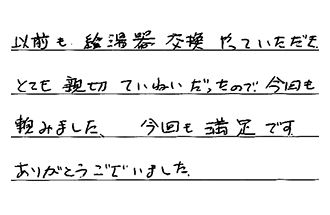 以前も 給湯器 交換 やっていただき、
とても 親切 ていねいだったので 今回も
頼みました、 今回も 満足です
ありがとうございました.